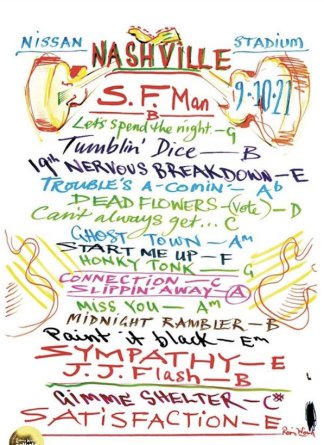 NISSAN NASHVILLE STADIUM
S.F. Man 9·10·21
B
Let's spend the night.-G
Tumblin' Dice-B
19th NERVOUS BREAKDOWN-E
TROUBLE'S A-COMIN'-Ab
DEAD FLOWERS-(Vote)-D
Can't always get... C
GHOST TOWN-Am
START ME UP-F
HONKY TONK-G
CONNECTION-C
SLIPPIN' AWAY-A
MISS YOU-Am
MIDNIGHT RAMBLER-B
Paint it black-Em
SYMPATHY-E
J.J. Flash-B
GIMME SHELTER-C#
SATISFACTION-E